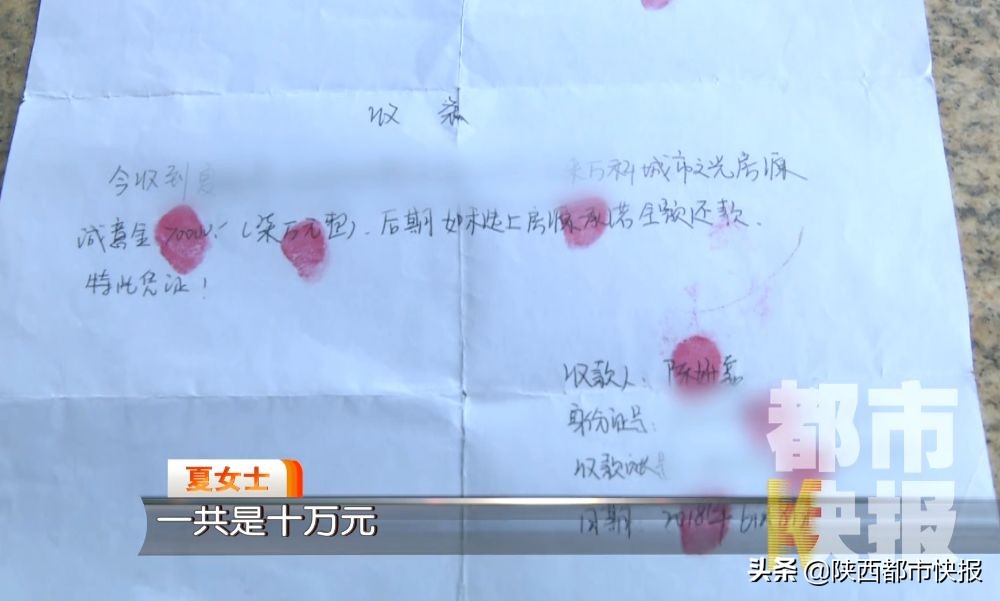 收条
今收到夏 买万科城市之光房源
诚意金70000.-(柒万元整),后期如未选上房源承诺全额还款.
特此凭证!
收款人:陈
身份证号:
收款
日期 2018年6月
夏女士
一共是十万元
都市
快报
头条 @陕西都市快报